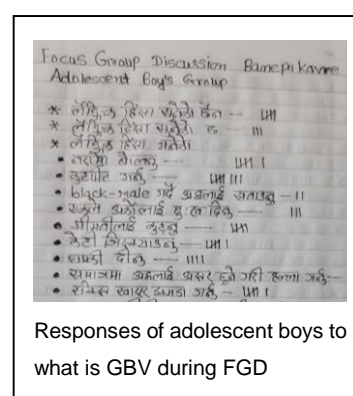 Focus Group Discussion Banepa Kavre
Adolescent Boy's Group
* लैङ्गिक हिंसा सहेको छैन —
* लैङ्गिक हिंसा सहेको छ —
* लैङ्गिक हिंसा
• नराम्रो बोल्नु —
• कुटपिट गर्नु —
• black-male गर्दै अरुलाई सताउनु — II
• अर्कोलाई दुःख दिनु III
• श्रीमतीलाई कुट्नु —
• केटी जिस्क्याउनु —
• धम्की दिनु — IIII
• समाजमा अरुलाई असर हुने गरी हल्ला गर्नु —
• रक्सि खाएर झगडा गर्नु —
Responses of adolescent boys to
what is GBV during FGD